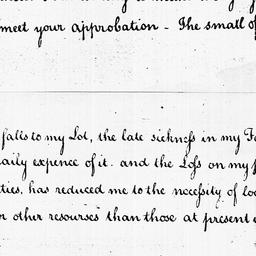 meet your approbation - The small of
falls to my Lot, the late sickneſs in my Fa
aily expence of it. and the Loſs on my
ties, has reduced me to the neceſsity of loo
or other resourses than those at present